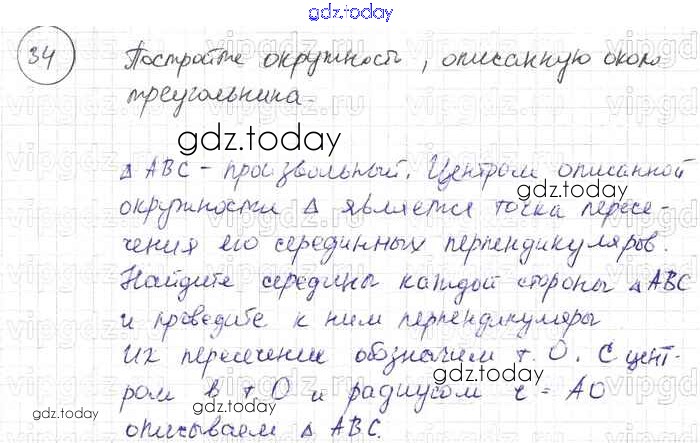 gdz.today
34 Постройте окружность, описанную около
треугольника.
gdz.today
△ ABC - произвольный. Центром описанной
gdz.today
окружности △ является точка пересе-
чения его серединных перпендикуляров.
Найдите середины каждой стороны △ ABC
и проведите к ним перпендикуляры
Их пересечение обозначим т. O. С цент-
gdz.today
ром в т. O и радиусом r = AO
gdz.today
gdz.today
описываем △ ABC.